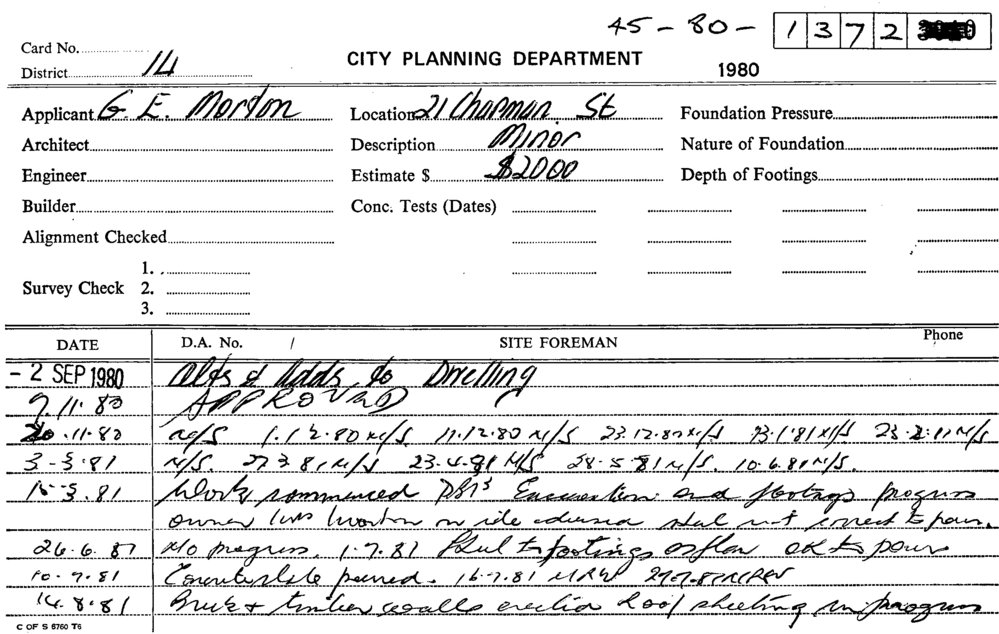 45-80-1372
Card No.
District 14
CITY PLANNING DEPARTMENT
1980
Applicant G. E. Morton
Location 21 Chapman St
Foundation Pressure
Architect
Description Minor
Nature of Foundation
Engineer
Estimate $ $2000
Depth of Footings
Builder
Conc. Tests (Dates)
Alignment Checked
1.
Survey Check 2.
3.
DATE D.A. No. / SITE FOREMAN Phone
- 2 SEP 1980 Alts & Adds to Dwelling
7.11.80 APPROVED
20.11.80 N/S 1.12.80 N/S 11.12.80 N/S 23.12.80 N/S 23.1.81 N/S 23.2.81 N/S
3-3.81 N/S. 27.3.81 N/S 23.4.81 N/S 28.5.81 N/S. 10.6.81 N/S.
15-3.81 Work commenced Excavation and footings progress
owner Morton on site advised steel not correct to pour.
26.6.81 No progress. 1.7.81 Steel to footings as plan OK to pour
10.7.81 poured. 16.7.81 29.7.81
14.8.81 Brick & timber walls erected Roof sheeting in progress
C OF S 6760 T6